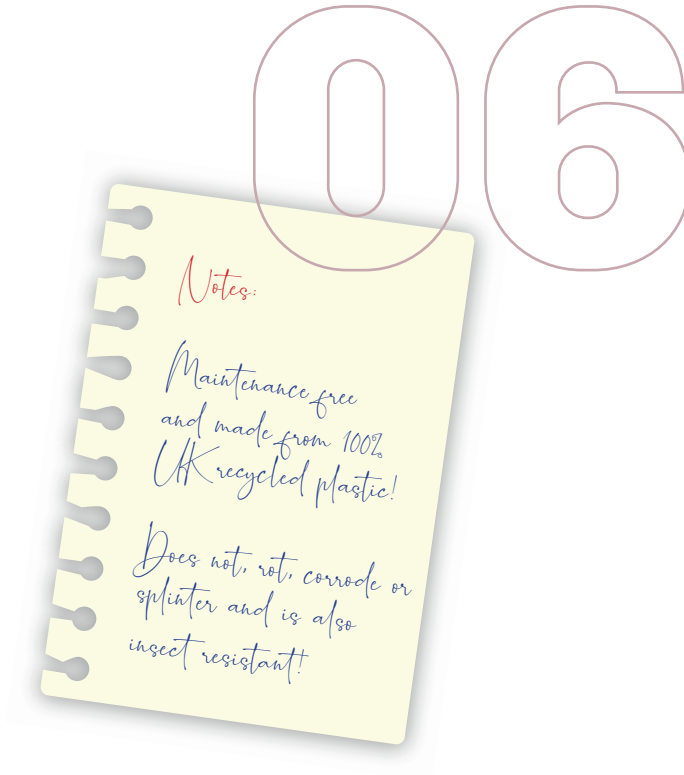 06
Notes:
Maintenance free
and made from 100%
UK recycled plastic!
Does not, rot, corrode or
splinter and is also
insect resistant!